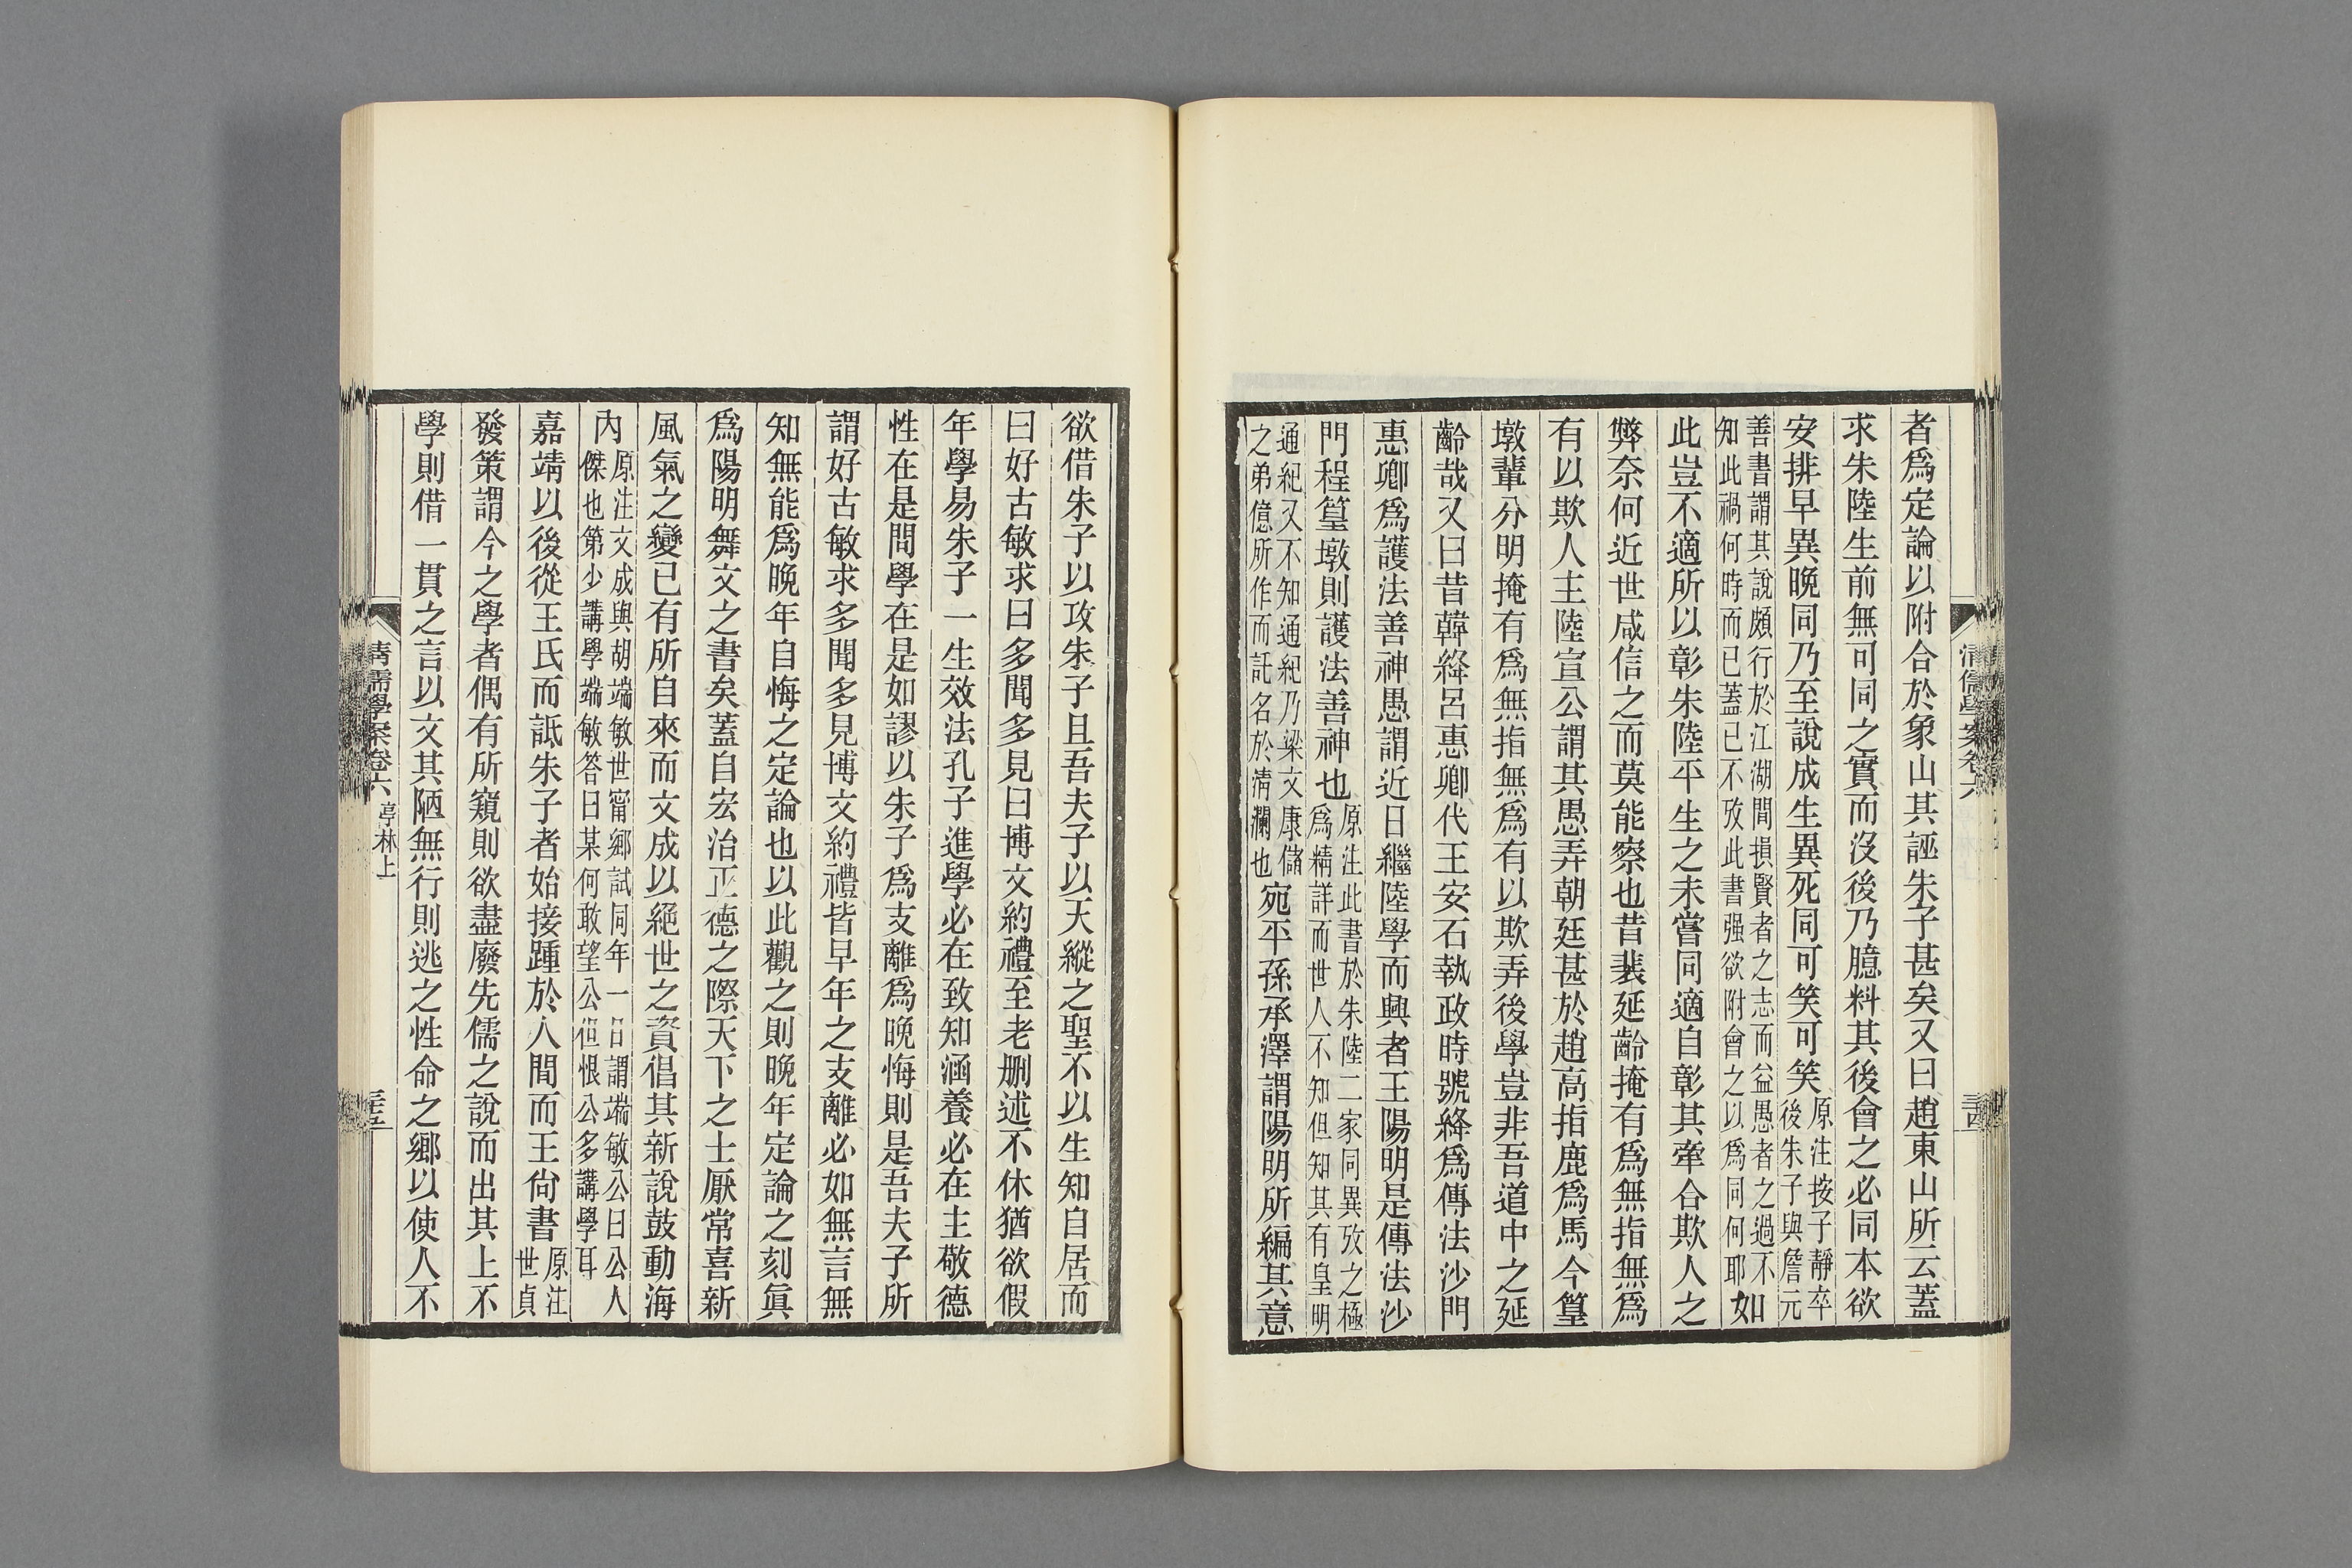 者爲定論以附合於象山其誣朱子甚矣又曰趙東山所云蓋
求朱陸生前無可同之實而沒後乃臆料其後會之必同本欲
安排早異晚同乃至說成生異死同可笑可笑原注按子靜卒
後朱子與詹元
善書謂其說頗行於江湖間損賢者之志而益愚者之過不如
知此禍何時而已蓋已不攷此書强欲附會之以爲同何耶如
此豈不適所以彰朱陸平生之未嘗同適自彰其牽合欺人之
弊奈何近世咸信之而莫能察也昔裴延齡掩有爲無指無爲
有以欺人主陸宣公謂其愚弄朝廷甚於趙高指鹿爲馬今篁
墩輩分明掩有爲無指無爲有以欺弄後學豈非吾道中之延
齡哉又曰昔韓絳呂惠卿代王安石執政時號絳爲傳法沙門
惠卿爲護法善神愚謂近日繼陸學而興者王陽明是傳法沙
門程篁墩則護法善神也原注此書於朱陸二家同異攷之極
爲精詳而世人不知但知其有皇明
通紀又不知通紀乃梁文康儲
之弟億所作而託名於淸瀾也宛平孫承澤謂陽明所編其意
清儒學案卷六
三十四
欲借朱子以攻朱子且吾夫子以天縱之聖不以生知自居而
曰好古敏求曰多聞多見曰博文約禮至老刪述不休猶欲假
年學易朱子一生效法孔子進學必在致知涵養必在主敬德
性在是問學在是如謬以朱子爲支離爲晚悔則是吾夫子所
謂好古敏求多聞多見博文約禮皆早年之支離必如無言無
知無能爲晚年自悔之定論也以此觀之則晚年定論之刻眞
爲陽明舞文之書矣蓋自宏治正德之際天下之士厭常喜新
風氣之變已有所自來而文成以絕世之資倡其新說鼓動海
內原注文成與胡端敏世甯鄉試同年一日謂端敏公曰公人
傑也第少講學端敏答曰某何敢望公但恨公多講學耳
嘉靖以後從王氏而詆朱子者始接踵於人間而王尙書原注
世貞
發策謂今之學者偶有所窺則欲盡廢先儒之說而出其上不
學則借一貫之言以文其陋無行則逃之性命之鄉以使人不
清儒學案卷六 亭林上
三十五